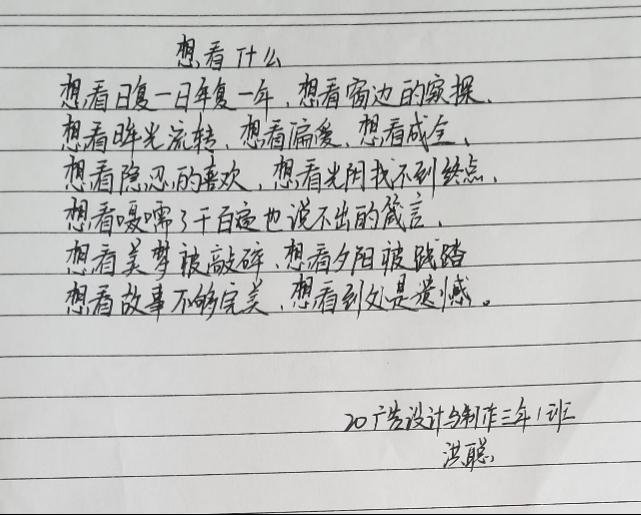 想看什么
想看日复一日年复一年、想看窗边的窥探、
想看眸光流转、想看偏爱、想看成全、
想看隐忍的喜欢、想看光阴找不到终点、
想看嗫嚅了千百遍也说不出的箴言、
想看美梦被敲碎、想看夕阳被践踏
想看故事不够完美、想看到处是遗憾。
20广告设计与制作三年1班
洪聪